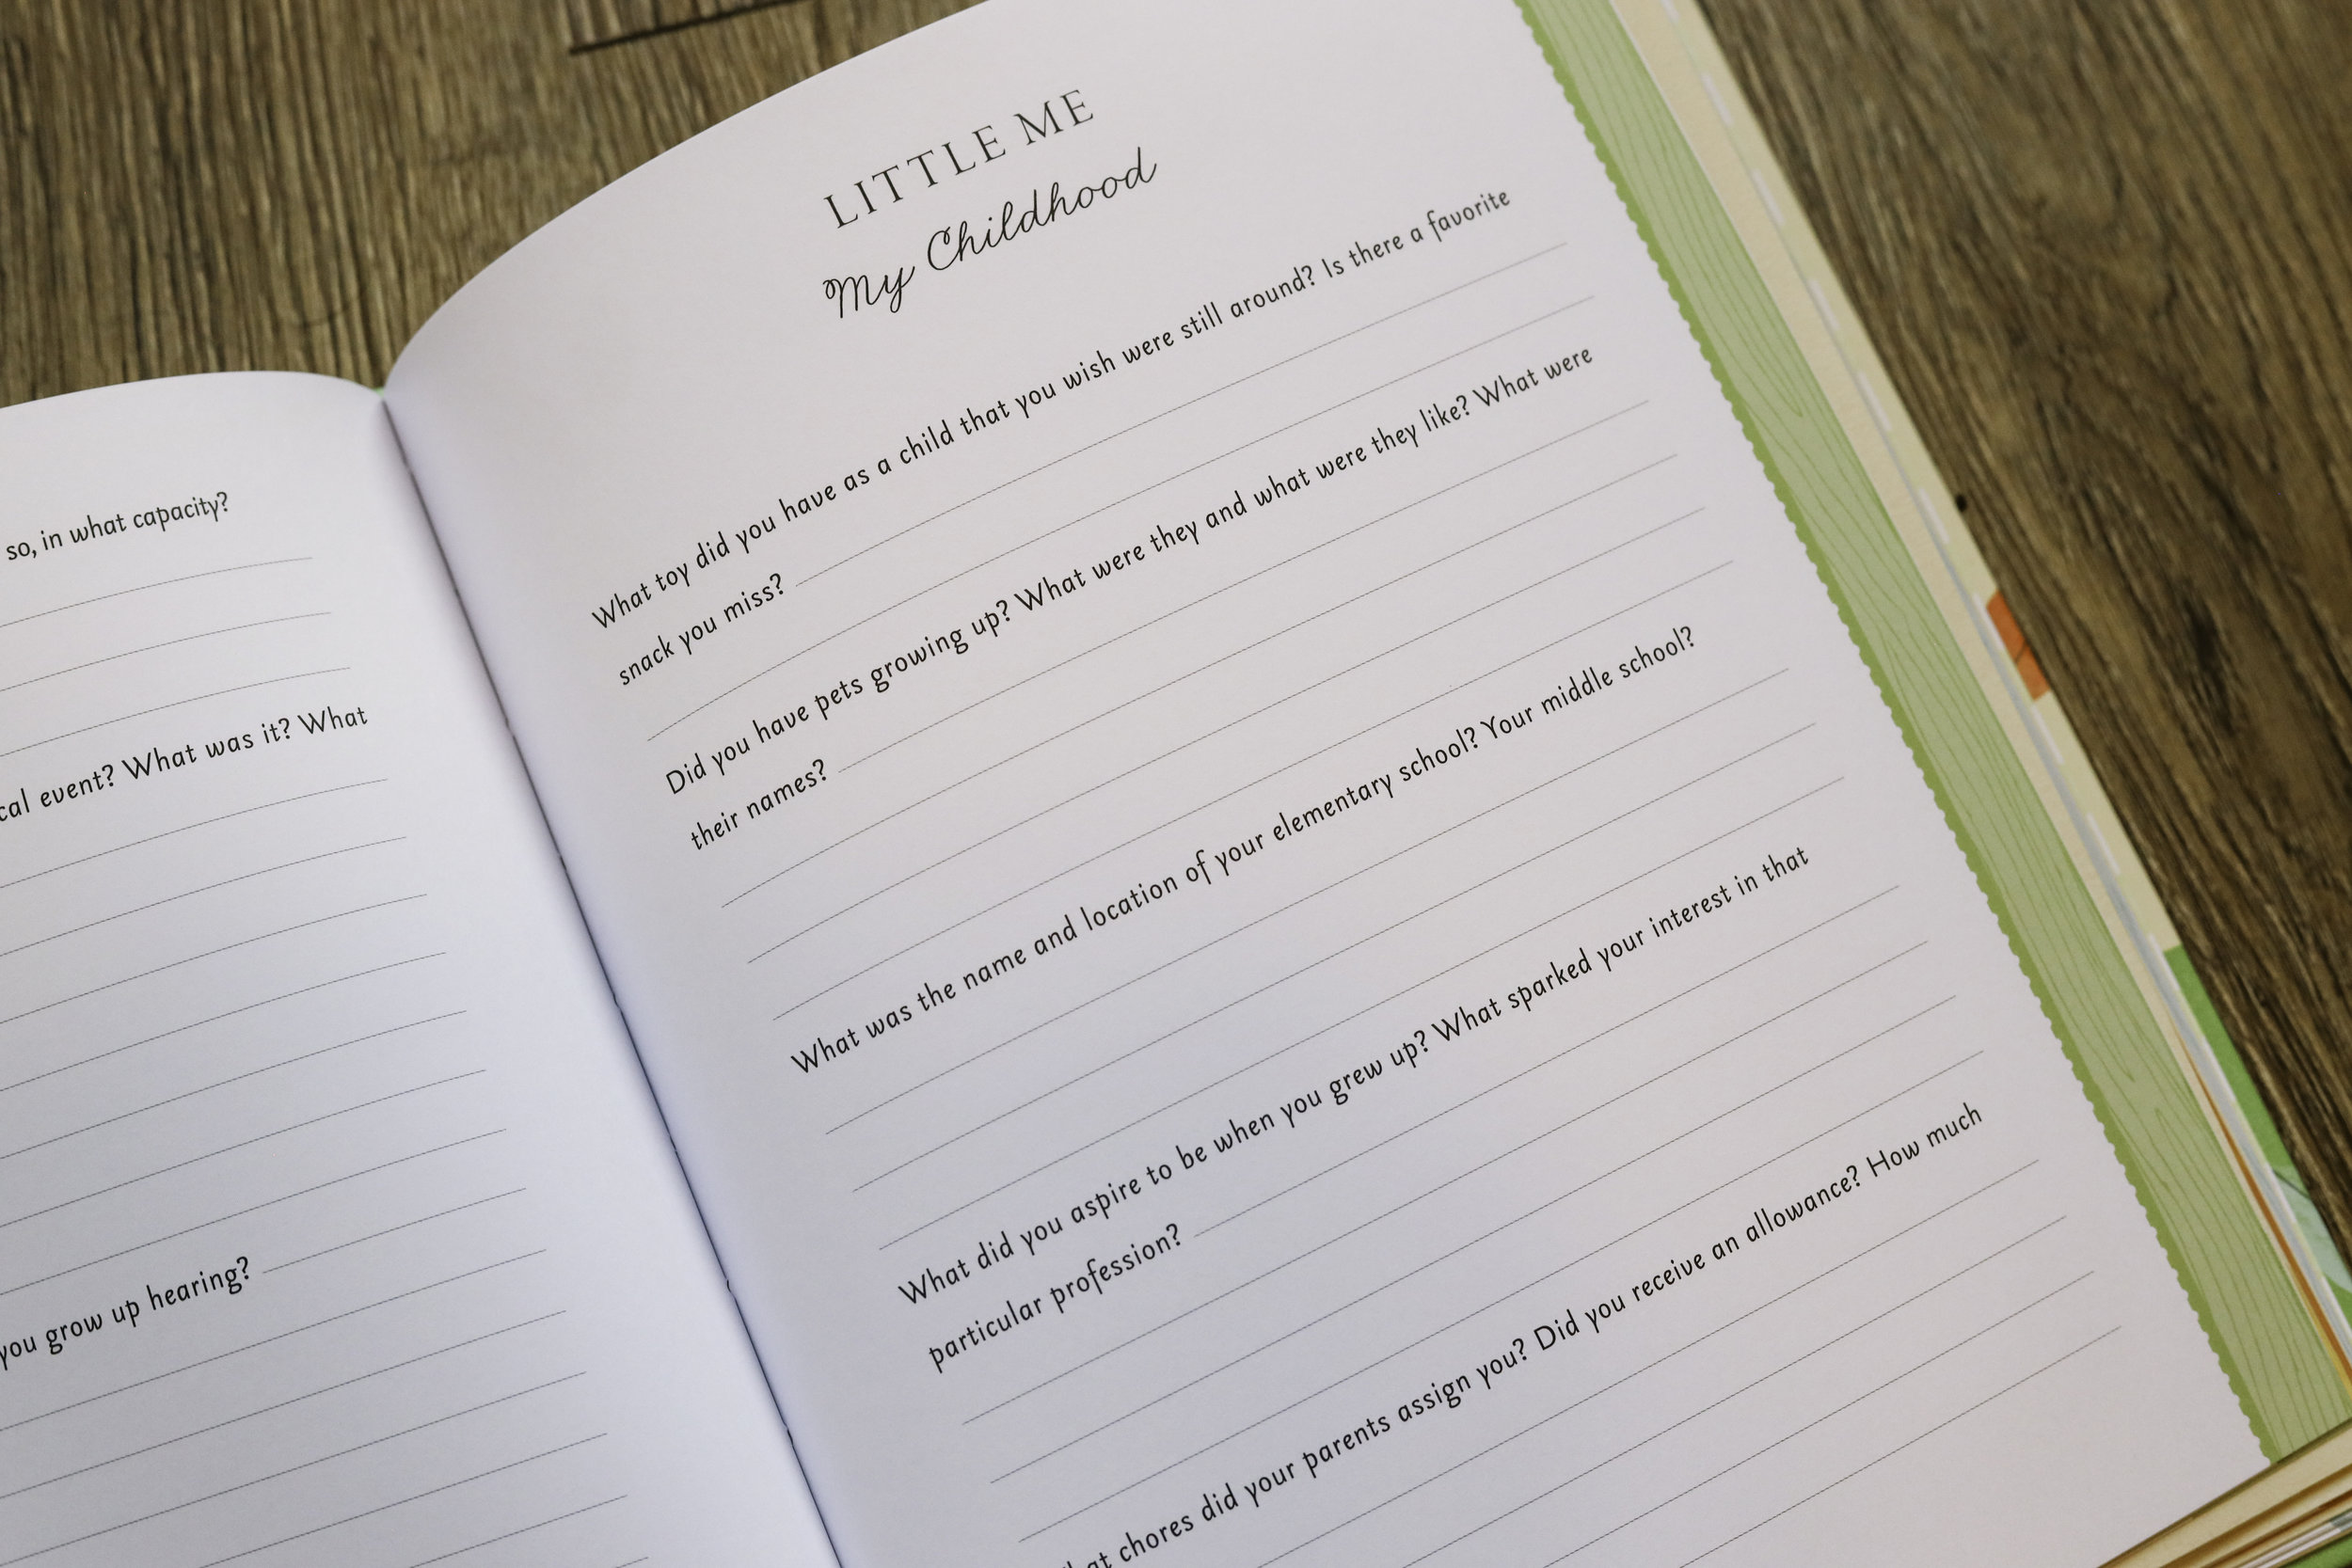 so, in what capacity?
event? What was it? What
you grow up hearing?
LITTLE ME
My Childhood
What toy did you have as a child that you wish were still around? Is there a favorite
snack you miss?
Did you have pets growing up? What were they and what were they like? What were
their names?
What was the name and location of your elementary school? Your middle school?
What did you aspire to be when you grew up? What sparked your interest in that
particular profession?
chores did your parents assign you? Did you receive an allowance? How much